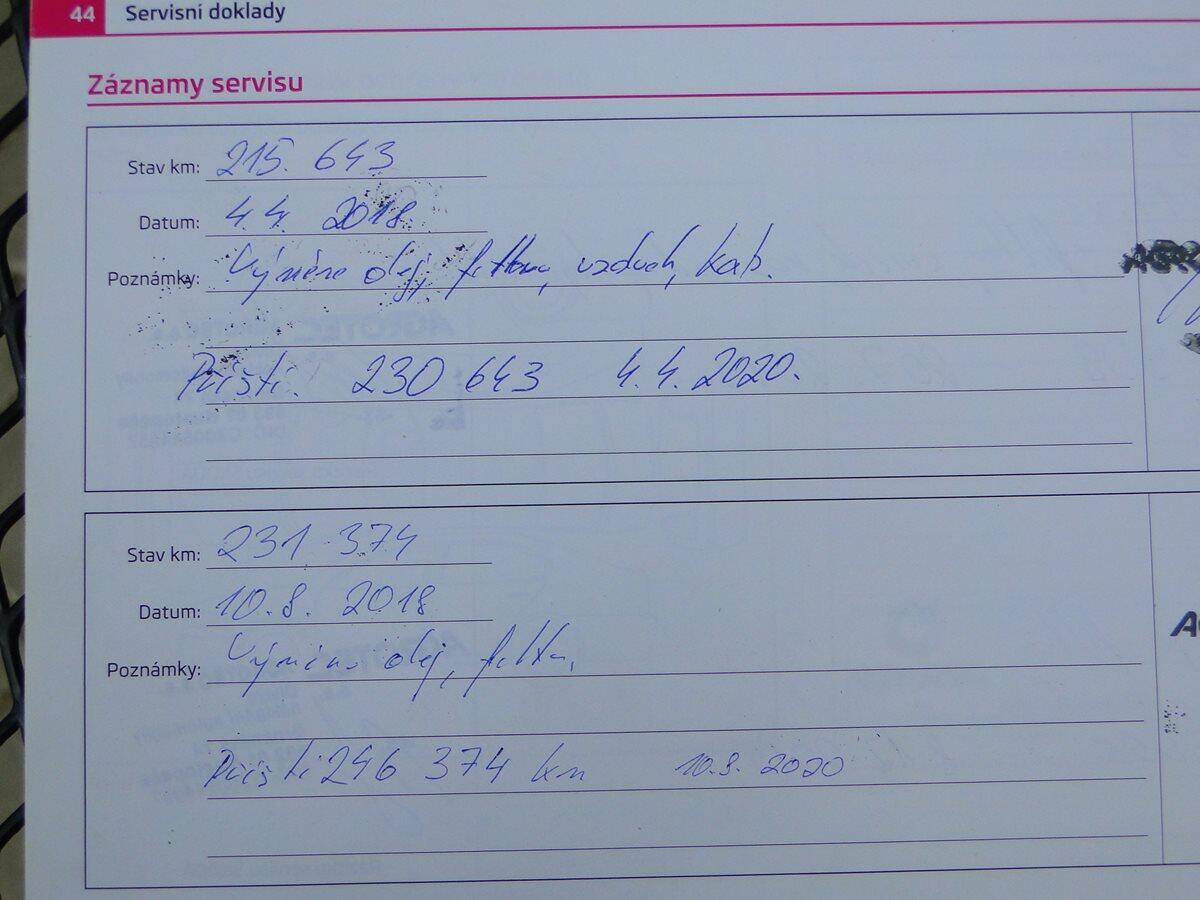 44 Servisní doklady
Záznamy servisu
Stav km: 215. 643
Datum: 4.4. 2018
Poznámky: Výměna olej, filtru, vzduch, kab.
AGRO
Příští. 230 643 4.4.2020.
Stav km: 231 374
Datum: 10.8. 2018
Poznámky: Výměna olej, filtru,
Příští 246 374 km 10.8. 2020